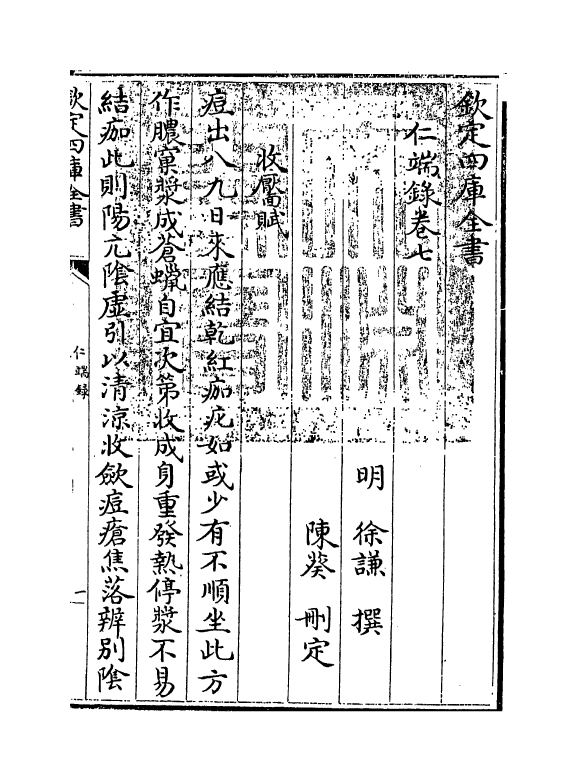 欽定四庫全書
仁端錄卷七
明 徐謙 撰
陳葵 刪定
收靨賦
痘出八九日來應結乾紅痂疕如或少有不順坐此方
作膿窠漿成蒼蠟自宜次第收成身重發熱停漿不易
結痂此則陽亢陰虛引以清涼收斂痘瘡焦落辨別陰
欽定四庫全書
仁端錄
一